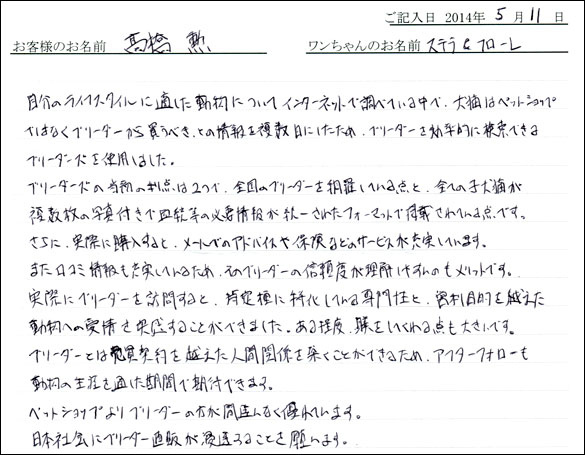 ご記入日 2014年 5 月 11 日
お客様のお名前 髙橋 勲 ワンちゃんのお名前 ステラ & フローレ
自分のライフスタイルに適した動物についてインターネットで調べている中で、犬猫はペットショップ
ではなくブリーダーから買うべき、との情報を複数目にしたため、ブリーダーを効率的に検索できる
ブリーダーズを使用しました。
ブリーダーズの当初の利点は2つで、全国のブリーダーを網羅している点と、全ての子犬猫が
複数枚の写真付きで血統等の必要情報が統一されたフォーマットで掲載されている点です。
さらに、実際に購入すると、メールでのアドバイスや保険などのサービスが充実しています。
また口コミ情報も充実しているため、そのブリーダーの信頼度が理解しやすいのもメリットです。
実際にブリーダーを訪問すると、特定種に特化している専門性と、営利目的を越えた
動物への愛情を実感することができました。ある程度、躾をしてくれる点も大きいです。
ブリーダーとは売買契約を越えた人間関係を築くことができるため、アフターフォローも
動物の生涯を通した期間で期待できます。
ペットショップよりブリーダーの方が間違いなく優れています。
日本社会にブリーダー直販が浸透することを願います。